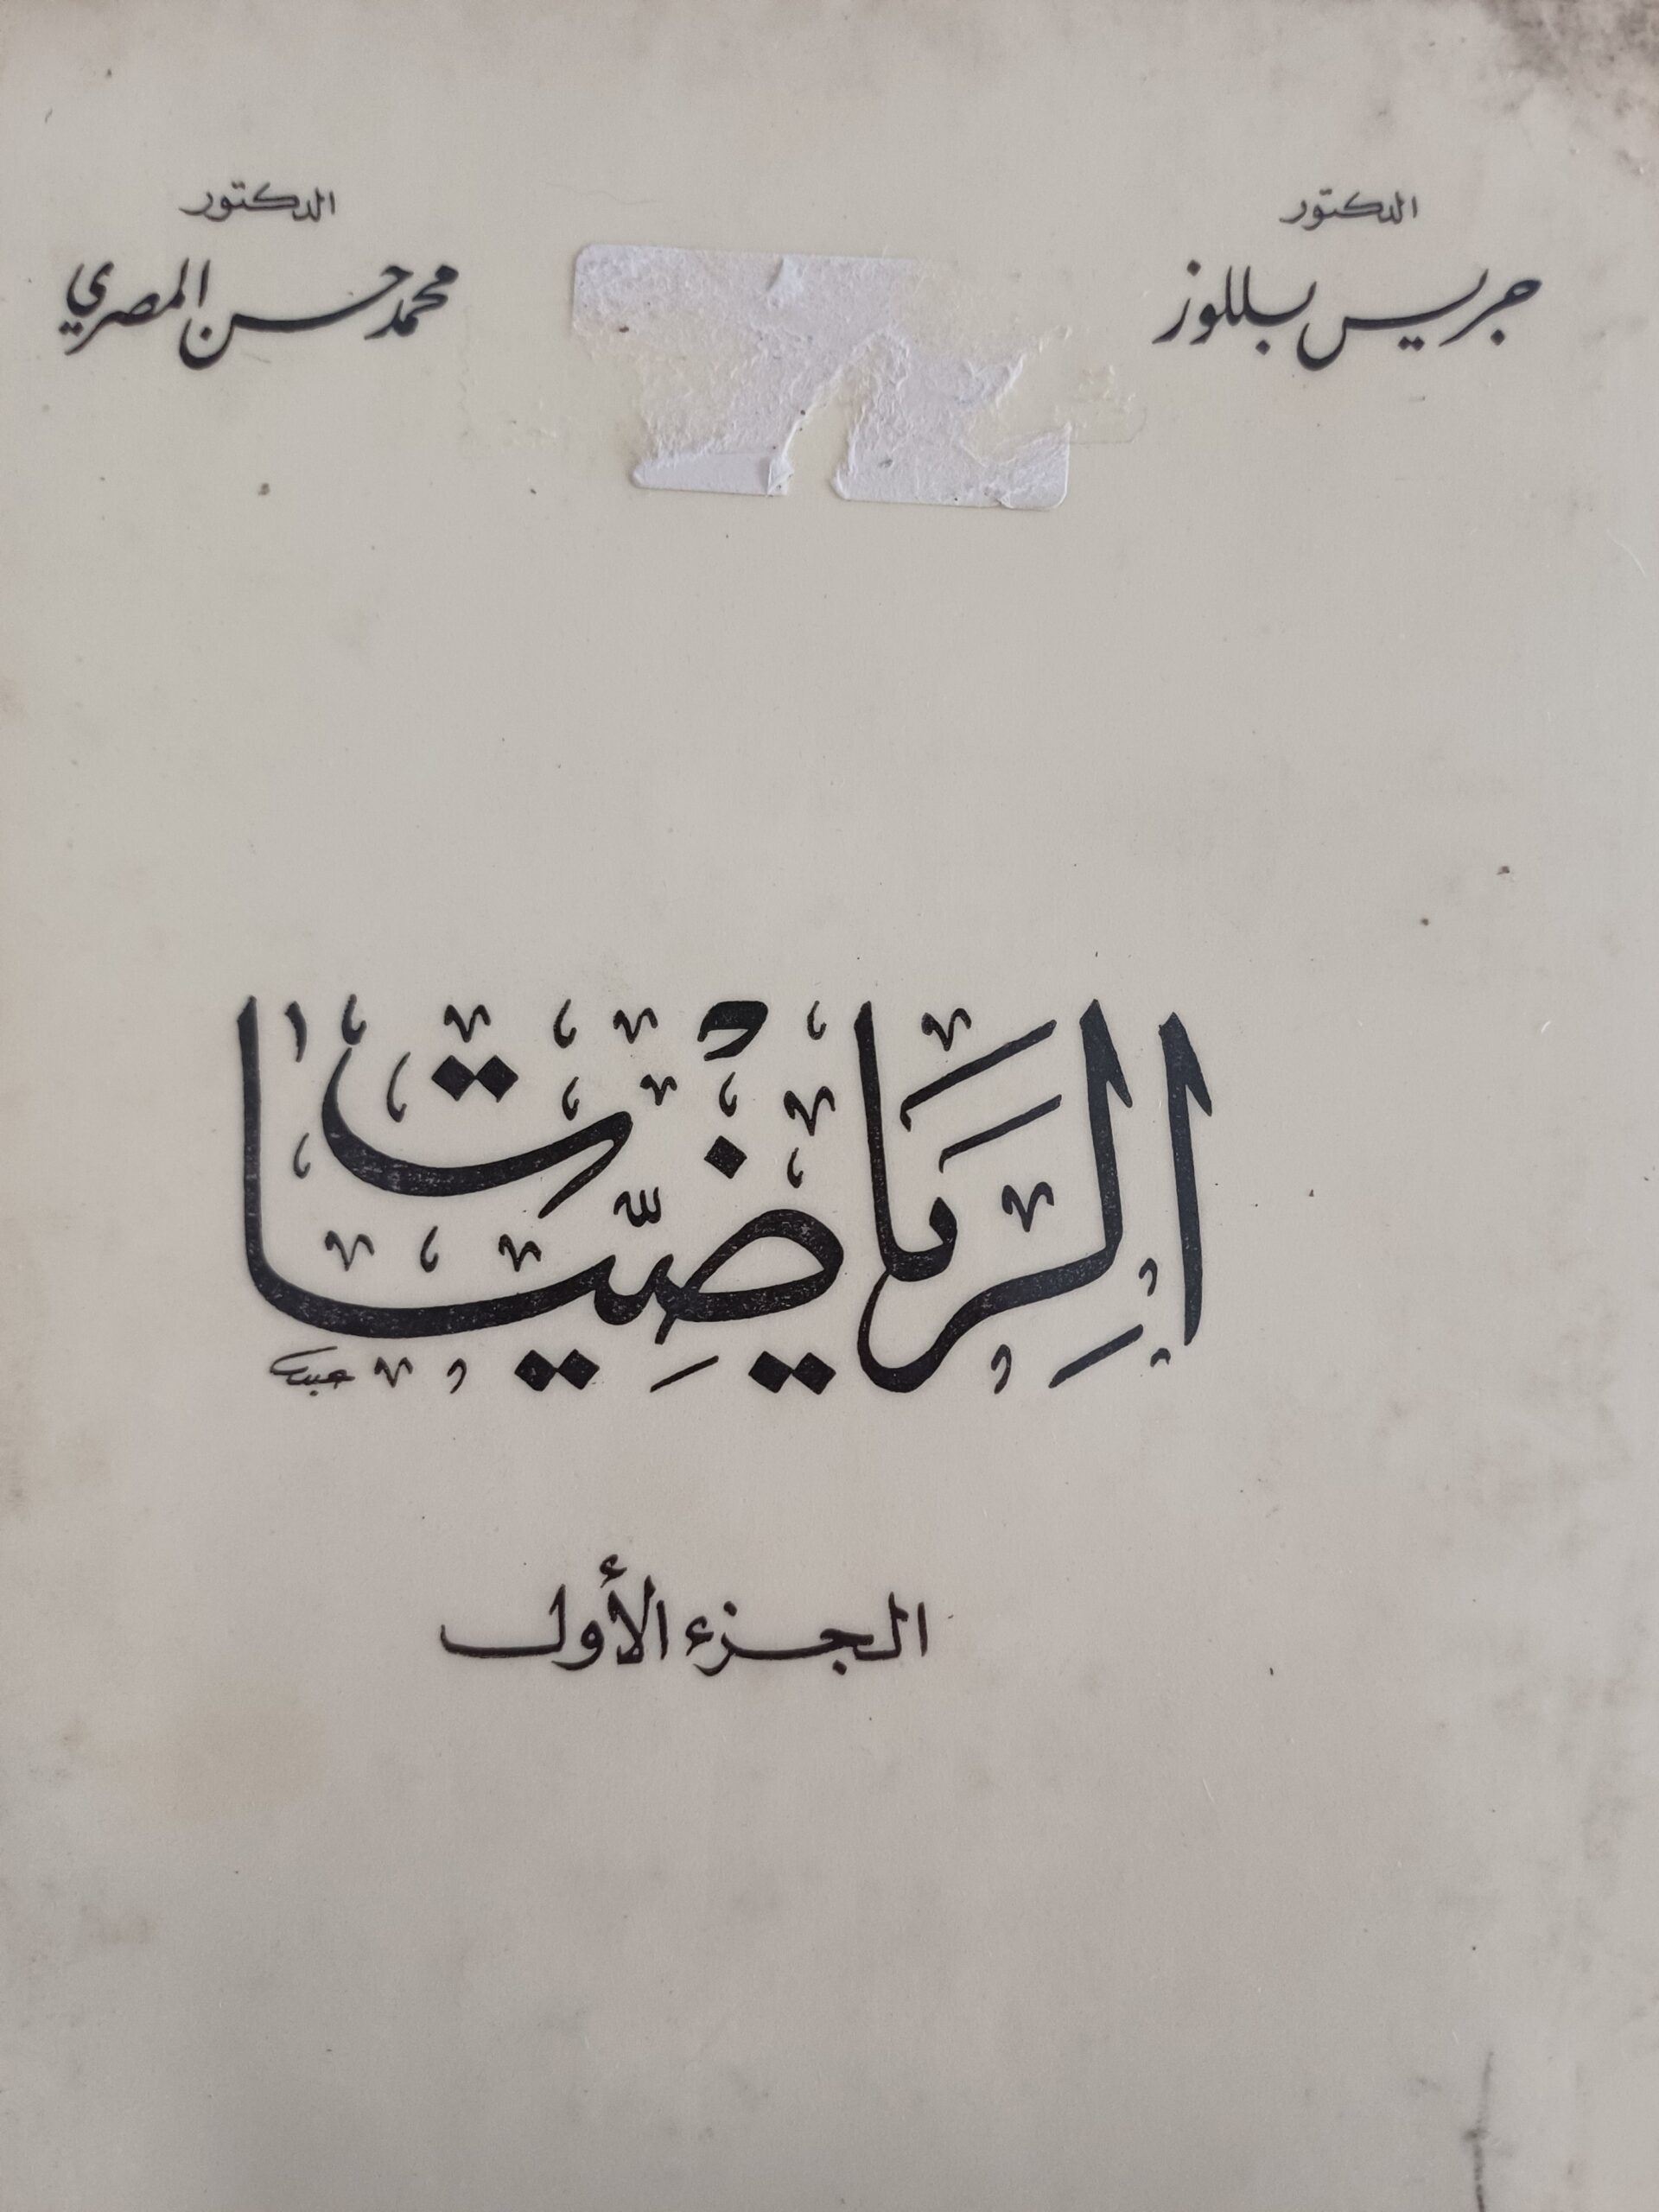 الدكتور
جريس بللوز
الدكتور
محمد حسن المصري
الرِّيَاضِيَّات
الجزء الأول